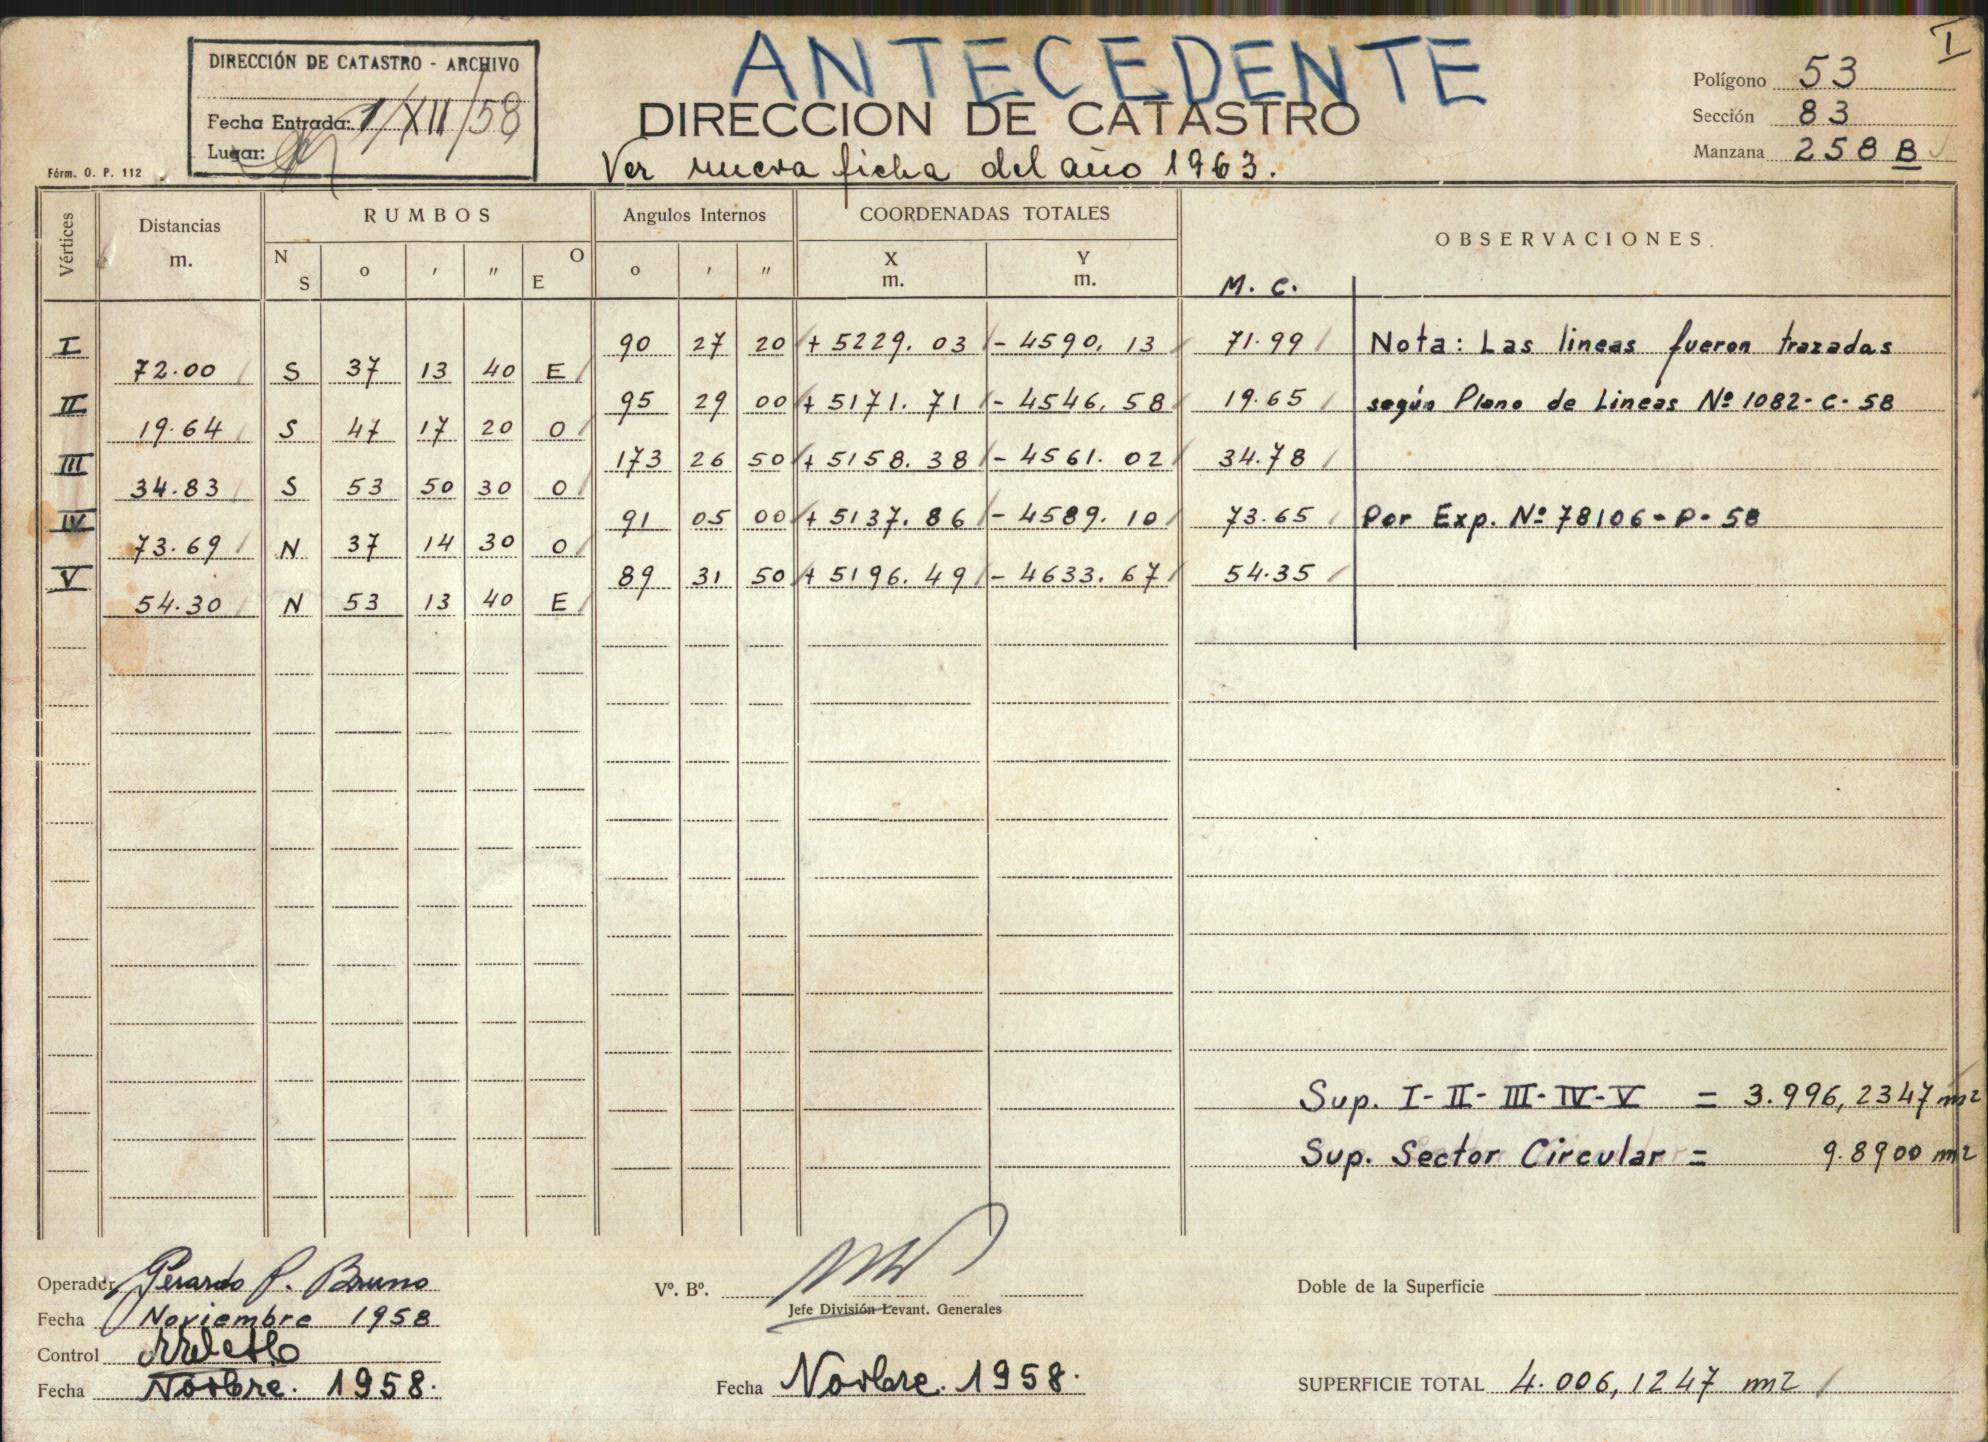 ANTECEDENTE
I
DIRECCIÓN DE CATASTRO - ARCHIVO
Fecha Entrada: 1/XII/58
Lugar:
DIRECCION DE CATASTRO
Ver nueva ficha del año 1963.
Polígono 53
Sección 83
Manzana 258 B
Fórm. O. P. 112
Vértices Distancias m. RUMBOS Angulos Internos COORDENADAS TOTALES OBSERVACIONES.
N S o ' " O E o ' " X m. Y m. M. C.
I 90 27 20 + 5229. 03 - 4590. 13 71.99 Nota: Las lineas fueron trazadas
72.00 S 37 13 40 E
II 95 29 00 + 5171. 71 - 4546. 58 19.65 según Plano de Lineas Nº 1082-C-58
19.64 S 47 17 20 O
III 173 26 50 + 5158. 38 - 4561. 02 34.78
34.83 S 53 50 30 O
IV 91 05 00 + 5137. 86 - 4589. 10 73.65 Por Exp. Nº 78106-P-58
73.69 N 37 14 30 O
V 89 31 50 + 5196. 49 - 4633. 67 54.35
54.30 N 53 13 40 E
Sup. I-II-III-IV-V = 3.996,2347 m2
Sup. Sector Circular = 9.8900 m2
Operador Gerardo P. Bruno
Fecha Noviembre 1958
Control
Fecha Novbre. 1958.
Vº. Bº.
Jefe División Levant. Generales
Fecha Novbre. 1958.
Doble de la Superficie
SUPERFICIE TOTAL 4.006,1247 m2